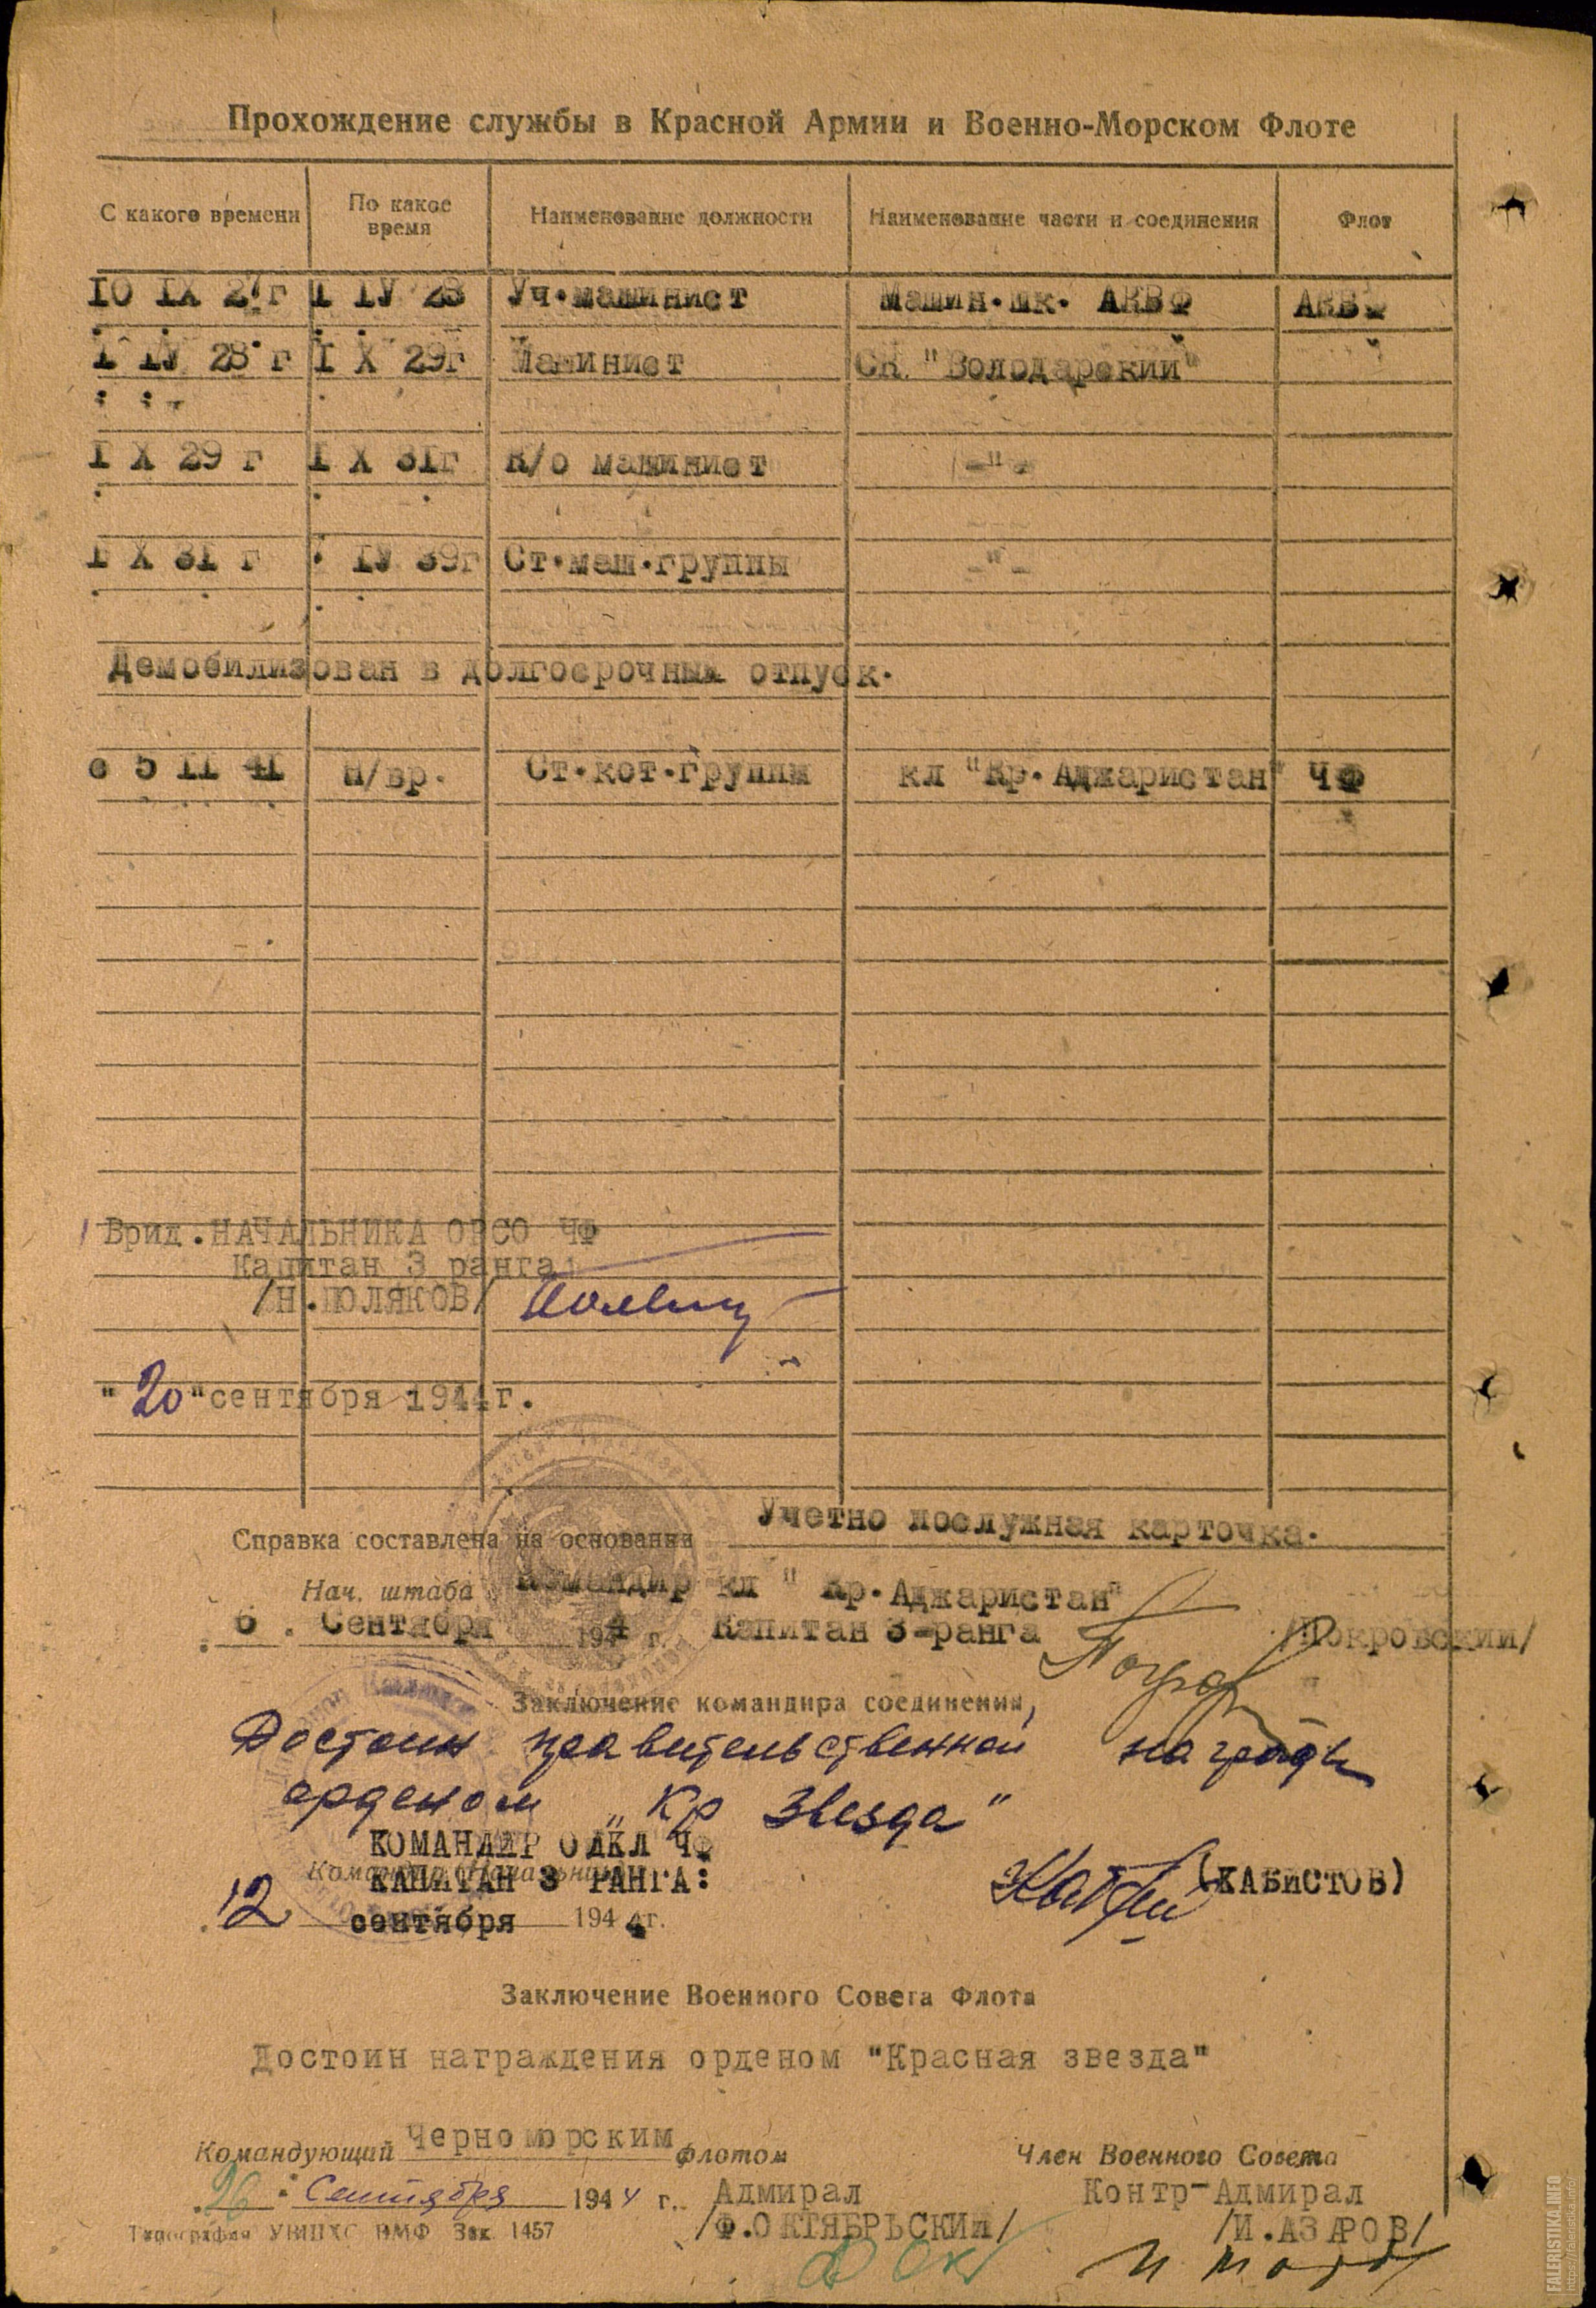 Прохождение службы в Красной Армии и Военно-Морском Флоте
С какого времени По какое время Наименование должности Наименование части и соединения Флот
IO IX 27г I IУ 28 Уч.машинист Машин.шк. АКВФ АКВФ
I IУ 28 г I X 29г Машинист СК "Володарский" "
I X 29 г I X 3Iг К/о машинист -"-
I X 3I г IУ 39г Ст.маш.группы -"-
Демобилизован в долгосрочный отпуск.
с 5 II 4I Н/вр. Ст.кот.группы кл "Кр.Аджаристан" ЧФ
Врид.НАЧАЛЬНИКА ОРСО ЧФ
Капитан 3 ранга
/Н.ПОЛЯКОВ/
"20"сентября 1944г.
Справка составлена на основании Учетно послужная карточка.
Нач. штаба Командир кл " Кр.Аджаристан"
6 . Сентября 1944 г. Капитан 3-ранга /Покровский/
Заключение командира соединения,
Достоин правительственной награды
орденом "Кр Звезда"
КОМАНДИР ОДКЛ ЧФ
Командир (Начальник)
КАПИТАН 3 РАНГА: (ЖАБИСТОВ)
12 сентября 1944 г.
Заключение Военного Совета Флота
Достоин награждения орденом "Красная звезда"
Командующий Черноморским флотом Член Военного Совета
26 Сентября 1944 г. Адмирал Контр-Адмирал
Типография УВИПХС ВМФ Зак. 1457 /Ф.ОКТЯБРЬСКИЙ/ /И.АЗАРОВ/
FALERISTIKA.INFO
https://faleristika.info/